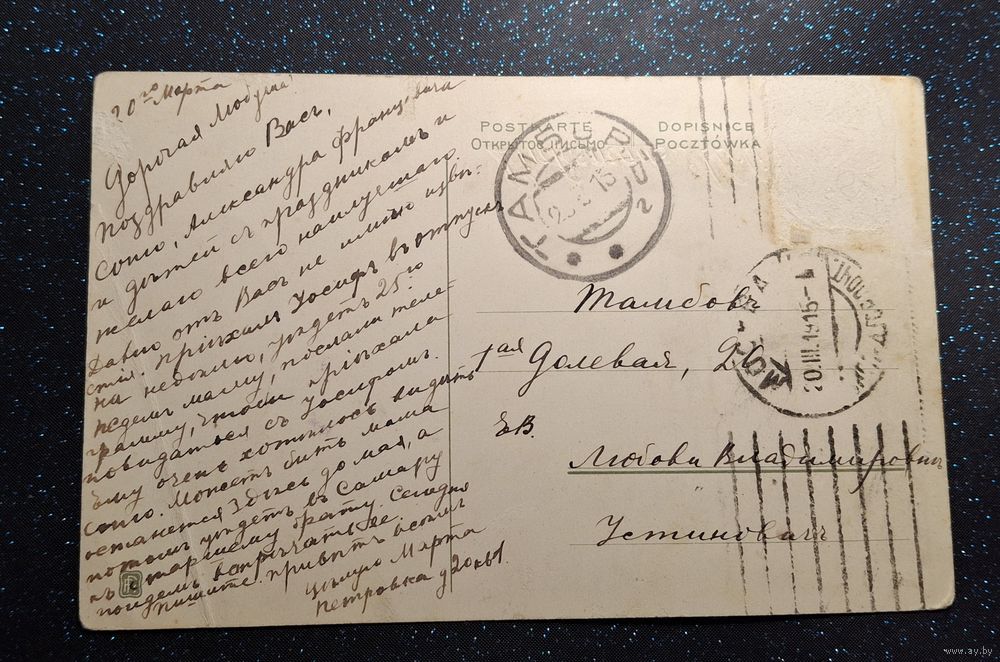 20го Марта
Дорогая Любуша!
Поздравляю Васъ,
Соню, Александра Францевича
и дѣтей съ праздникомъ и
желаю всего наилучшаго.
Давно отъ Васъ не имѣю извѣ-
стій. Пріѣхалъ Іосифъ въ отпускъ
на недѣлю, уѣдетъ 25го
ждемъ маму, послали теле-
грамму, чтобы пріѣхала
повидаться съ Іосифомъ.
Ему очень хотѣлось видѣть
Соню. Можетъ быть мама
останется здѣсь до мая, а
потомъ уѣдетъ въ Самару
къ старшему брату. Сегодня
пойдемъ встрѣчать ее.
Пишите. Привѣтъ всѣмъ
Цѣлую Марта
Петровка д 20 кв 1
POSTKARTE
ОТКРЫТОЕ ПИСЬМО
DOPISNICE
POCZTÓWKA
ТАМБОВЪ
15
2
МОСКВА
20.III.1915
Тамбовъ
1ая Долевая, 20
ЕВ.
Любови Владимировнѣ
Устиновичъ
www.ay.by